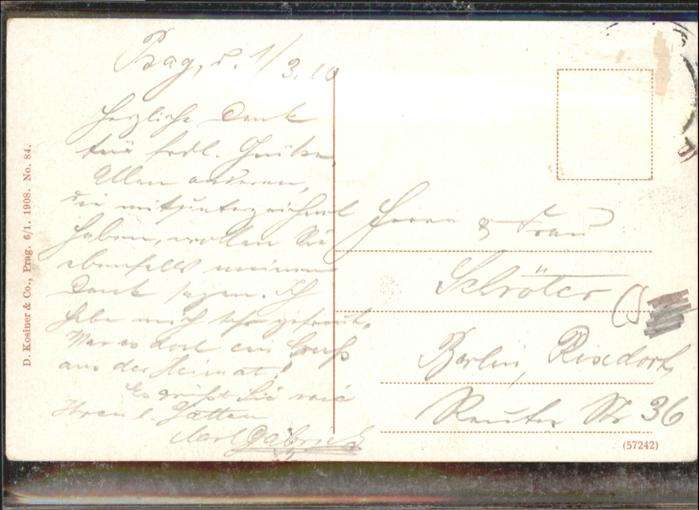 Prag, d. 1/3.10
Herzliche Dank
für frdl. Grüße,
Allen anderen,
die mitunterzeichnet
haben, wollen Sie
ebenfalls meinen
Dank sagen. Ich
habe mich sehr gefreut,
War es doch ein Gruß
aus der Heimat!
Es grüßt Sie wie
Ihren l. Gatten
Karl
Herrn & Frau
Schröter
Berlin, Rixdorf
Reuter Str 36
D. Kosiner & Co., Prag. 6/1. 1908. No. 84.
(57242)